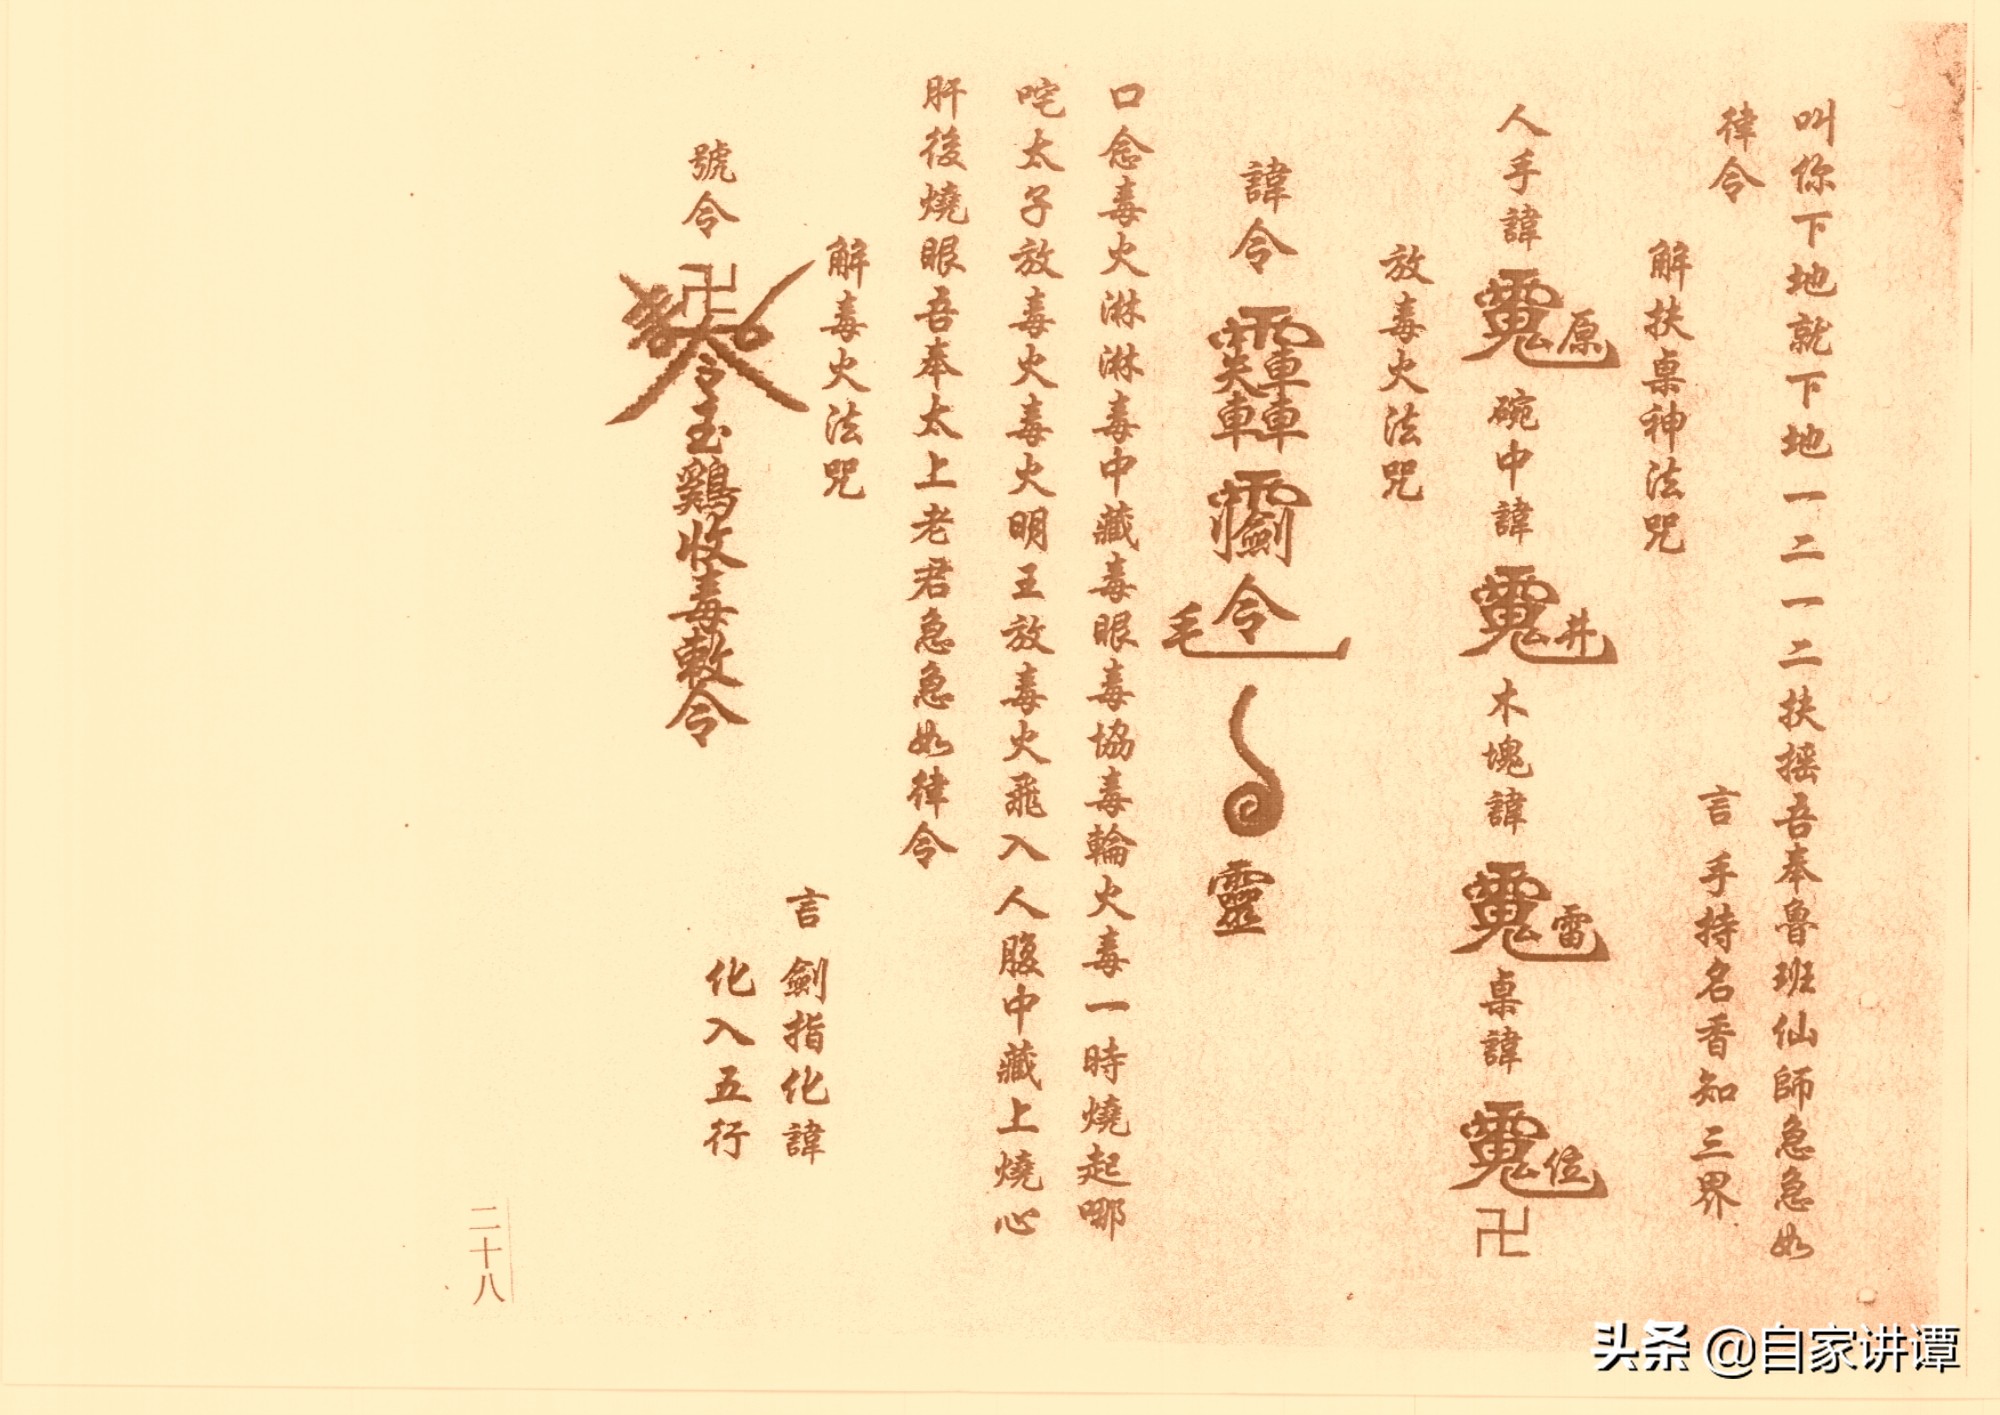 叫你下地就下地一二一二扶摇吾奉魯班仙師急急如
律令
言手持名香知三界
解扶桌神法咒
人手諱 原 碗中諱 井 木塊諱 雷 桌諱 位 卍
放毒火法咒
諱令 令 毛 靈
口念毒火淋淋毒中藏毒眼毒協毒輪火毒一時燒起哪
咤太子放毒火毒火明王放毒火飛入人腹中藏上燒心
肝後燒眼吾奉太上老君急急如律令
解毒火法咒
言劍指化諱
號令 卍 令玉鷄收毒敕令
化入五行
二十八
头条 @自家讲谭